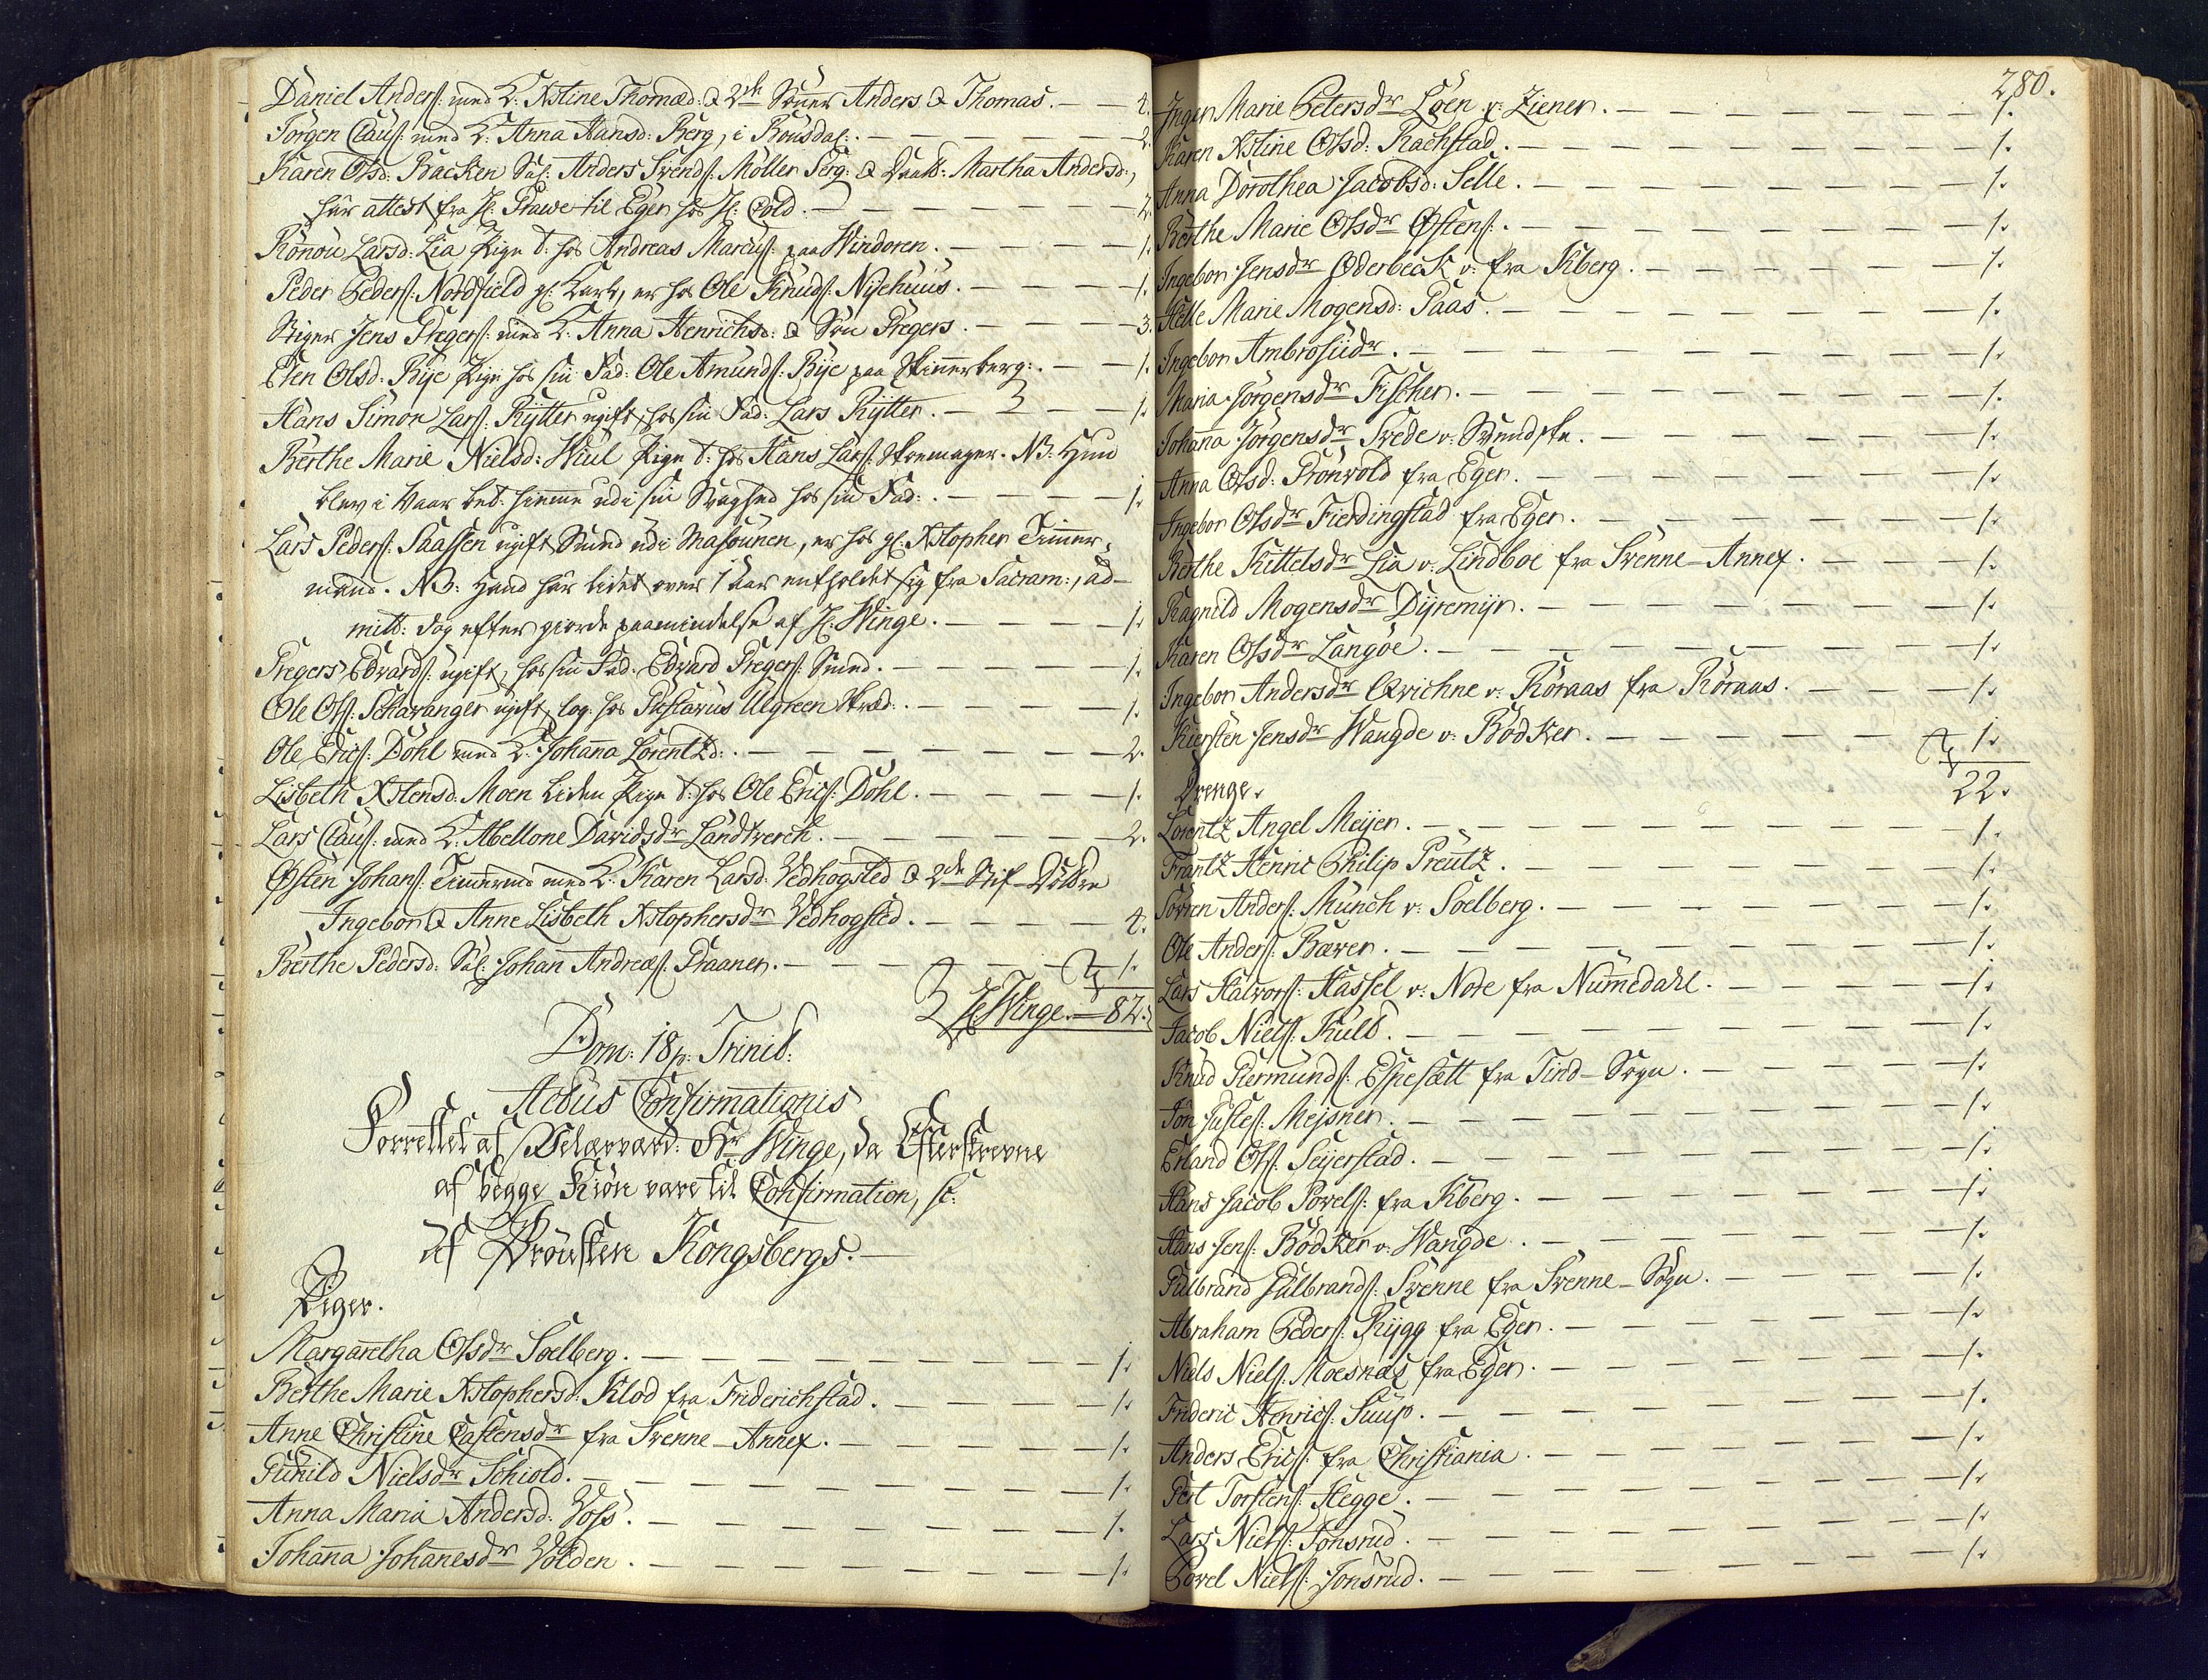 Daniel Anders: med K: Xstine Thomæd: & 2de Sønner Anders & Thomas. — 4.
Jørgen Claus: med K: Anna Hansd: Berg, i Kousdal: — 2.
Karen Olsd: Backen Sal: Anders Svends: Møller Serg: & Daatt: Martha Andersd:,
hår attest fra H: Prawe til Eger hos H: Cold. — 2.
Rönou Larsd: Lia Pige t: hos Andreas Marcus: paa Windoren. — 1.
Peder Peders: Nordfield gl: Karl, er hos Ole Knuds: Nyehuus. — 1.
Stiger Jens Gregers: med K: Anna Henrichsd: & Søn Gregers. — 3.
Elen Olsd: Bye Pige hos sin Fad: Ole Amunds: Bye paa Skinnerberg: — 1.
Hans Simon Lars: Rytter ugift, hos sin Fad: Lars Rytter. — 1.
Berthe Marie Nielsd: Wiul Pige t: hos Hans Lars: Skoemager. NB: Hun
blev i Vaar bet: hieme udi sin Svaghed hos sin Fad: — 1.
Lars Peders: Saassen ugift Smed udi Masounen, er hos gl: Xstopher Timer-
mand. NB: Hand hår lidet over 1 Aar entholdet sig fra Sacram:, ad-
mitt: dog efter giorde paamindelse af H: Winge. — 1.
Gregers Edvards: ugift, hos sin Fad: Edvard Gregers: Smed. — 1.
Ole Ols: Scharanger ugift, log: hos Gustavus Ulgreen Skræd: — 1.
Ole Erics: Dohl med K: Johanna Lorentzd: — 2.
Lisbeth Xstensd: Moen liden Pige t: hos Ole Erics: Dohl. — 1.
Lars Claus: med K: Abellone Davidsdr Landtverck. — 2.
Østen Johans: Timermd med K: Karen Larsd: Vedhogsted & 2de Stif-Døttre
Ingebor & Anne Lisbeth Xstophersdr Vedhogsted. — 4.
Berthe Pedersd: Sal: Johan Andreæs: Graaner. — 1.
H: Winge. — 82.
Dom: 18 p: Trinit:
Actus Confirmationis
Forrettet af Velærværd: Hr Winge, da Efterskrevne
af begge Kiøn vare til Confirmation, sc:
Af Provstien Kongsbergs. —
Piger.
Margaretha Olsdr Soelberg. — 1.
Berthe Marie Xstophersd: Klod fra Friderichstad. — 1.
Anne Christine Castensdr fra Svenne-Annex. — 1.
Gunild Nielsdr Schiold. — 1.
Anna Maria Andersd: Voss. — 1.
Johanna Johanesdr Volden. — 1.
280.
Inger Marie Petersdr Loen v: Ziener. — 1.
Karen Xstine Olsd: Rachstad. — 1.
Anna Dorothea Jacobsd: Selle. — 1.
Berthe Marie Olsdr Østens: — 1.
Ingebor Jensdr Oderbeck v: fra Kberg. — 1.
Helle Marie Mogensd: Paas. — 1.
Ingebor Ambrosiidr. — 1.
Maria Jörgensdr Fischer. — 1.
Johanna Jörgensdr Svede v: Svendske. — 1.
Anna Olsd: Grönvold fra Eger. — 1.
Ingebor Olsdr Fierdingstad fra Eger. — 1.
Berthe Kittelsdr Lia v: Lindboe fra Svenne-Annex. — 1.
Ragnild Mogensdr Dyremyr. — 1.
Karen Olsdr Langöe. — 1.
Ingebor Andersdr Qvichne v: Röraas fra Röraas. — 1.
Kiersten Jensdr Wangde v: Bödker. — 1.
22.
Drenge.
Lorentz Angel Meyer. — 1.
Frantz Henric Philip Preutz. — 1.
Sörren Anders: Munch v: Soelberg. — 1.
Ole Anders: Bæver. — 1.
Lars Halvors: Hassel v: Nore fra Numedahl. — 1.
Jacob Niels: Kuld. — 1.
Knud Giermunds: Espesætt fra Tind-Sogn. — 1.
Jon Justes: Mejsner. — 1.
Erland Ols: Seyerstad. — 1.
Hans Jacob Povels: fra Kberg. — 1.
Hans Jens: Bödker v: Wangde. — 1.
Gulbrand Gulbrands: Svenne fra Svenne-Sogn. — 1.
Abraham Peders: Rygg fra Eger. — 1.
Niels Niels: Moesnæs fra Eger. — 1.
Frideric Henrics: Suup. — 1.
Anders Erics: fra Christiania. — 1.
Gert Torstens: Hegge. — 1.
Lars Niels: Jonsrud. — 1.
Povel Niels: Jonsrud. — 1.